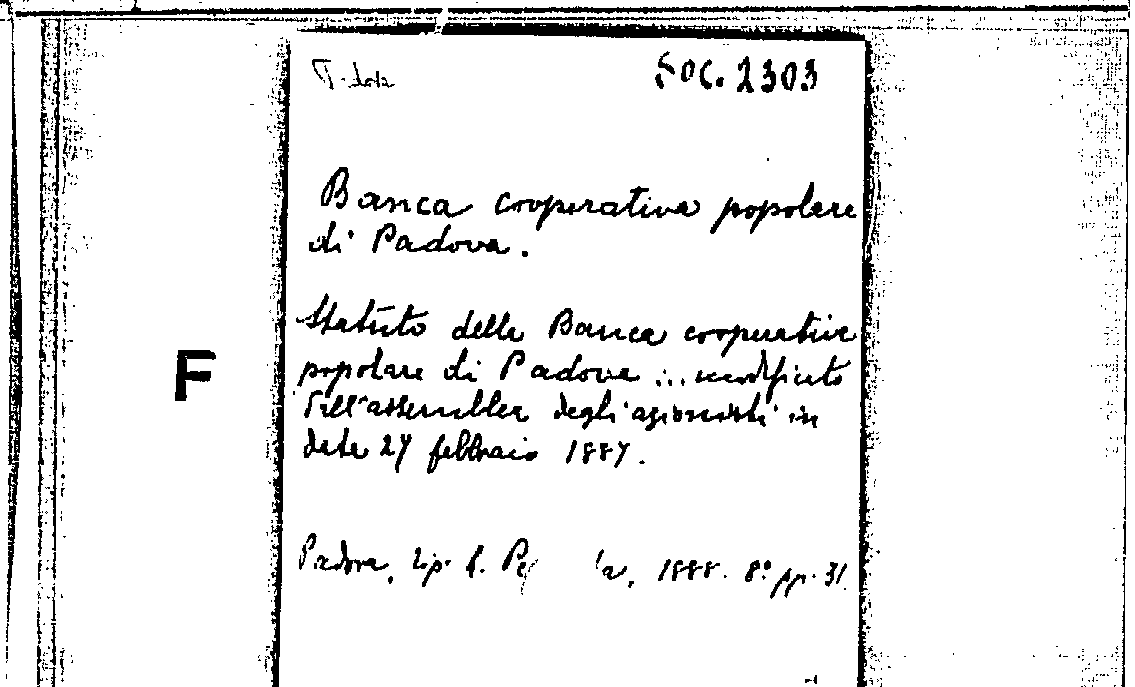 Soc. 2303
Banca cooperativa popolare
di Padova.
Statuto della Banca cooperativa
popolare di Padova ... modificato
dall'assemblea degli azionisti in
data 27 febbraio 1887.
F
Padova, tip. 1888. 8° pp. 31.